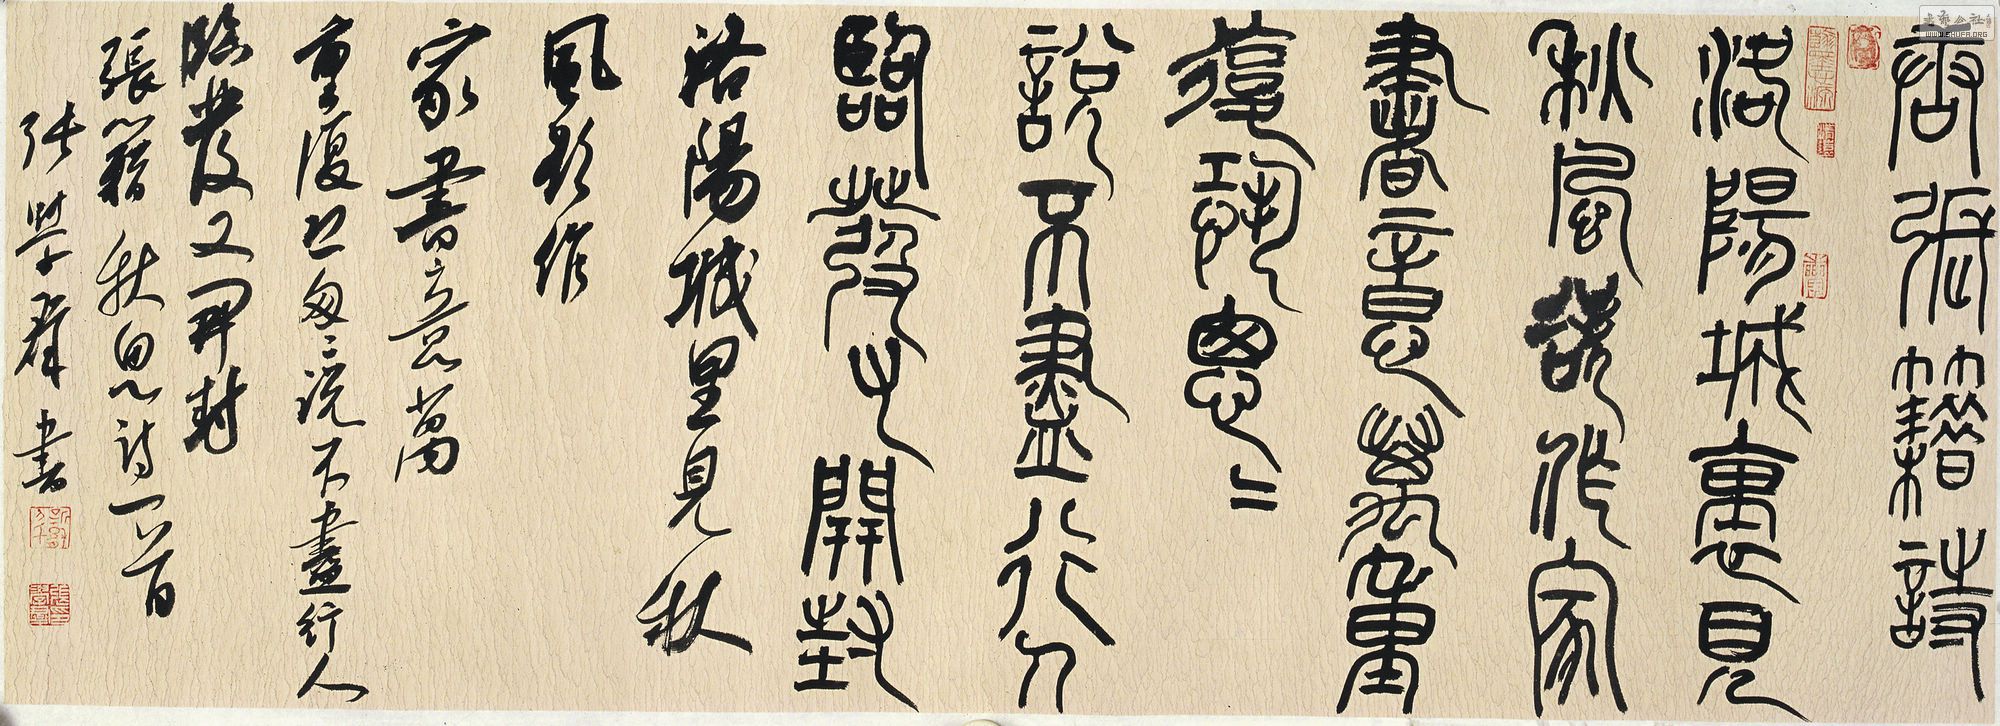 唐張籍詩
洛陽城裏見
秋風欲作家
書意萬重
復恐悤〻
說不盡行人
臨發又開封
洛陽城里見秋
風欲作
家書意萬
重復恐匆〻說不盡行人
臨發又開封
張籍秋思詩一首
張學群書
WWW.SHUFA.ORG